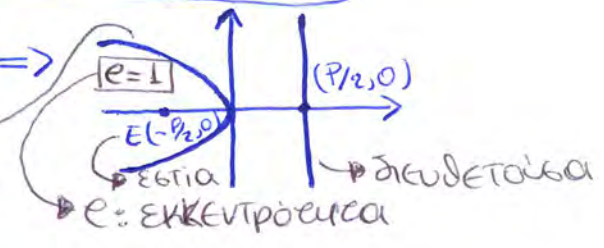 =>
e=1
(P/2,0)
E(-P/2,0)
εστία
διευθετούσα
e: εκκεντρότητα